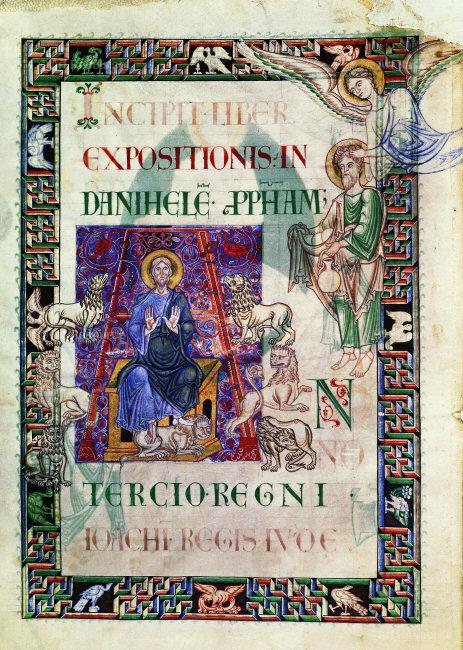 INCIPIT·LIBER
EXPOSITIONIS·IN
DANIHELĒ·
AN
NO
TERCIO·REGNI·
REGIS·IVDE